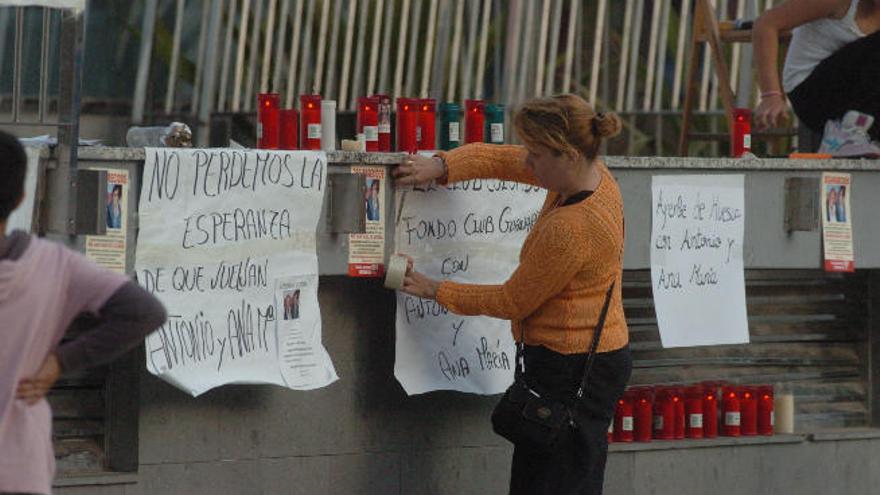 NO PERDEMOS LA
ESPERANZA
DE QUE VUELVAN
ANTONIO Y ANA Mª
FONDO CLUB GUARA
CON
ANTONIO
Y
ANA MARÍA
Ayerbe de Huesca
con Antonio y
Ana María